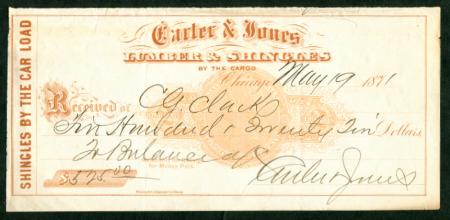 SHINGLES BY THE CAR LOAD
Carter & Jones
LUMBER & SHINGLES
BY THE CARGO
Chicago, May 19 1871
Received of C G Clark
Five Hundred & Twenty Five Dollars
To Balance of
for Money Paid.
$525.00
Carter & Jones